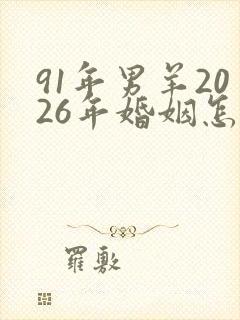 91年男羊20
26年婚姻怎
羅敷